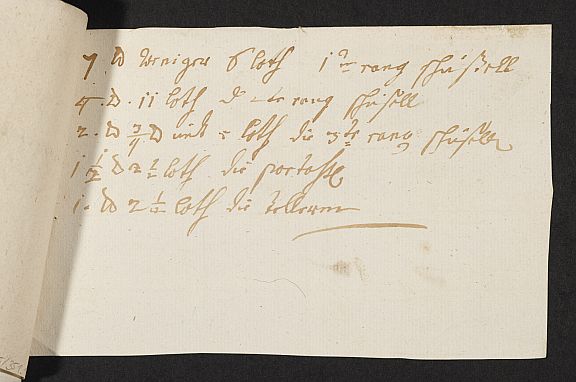 7 ℔ weniger 6 loth 1te rang schüssell
4 ℔ 11 loth d 2te rang schüsell
2 ℔ 3/4 ℔ und loth die 3te rang schüsell
1 1/2 ℔ 2 1/2 loth die portasse
1 ℔ 2 1/2 loth die telleren